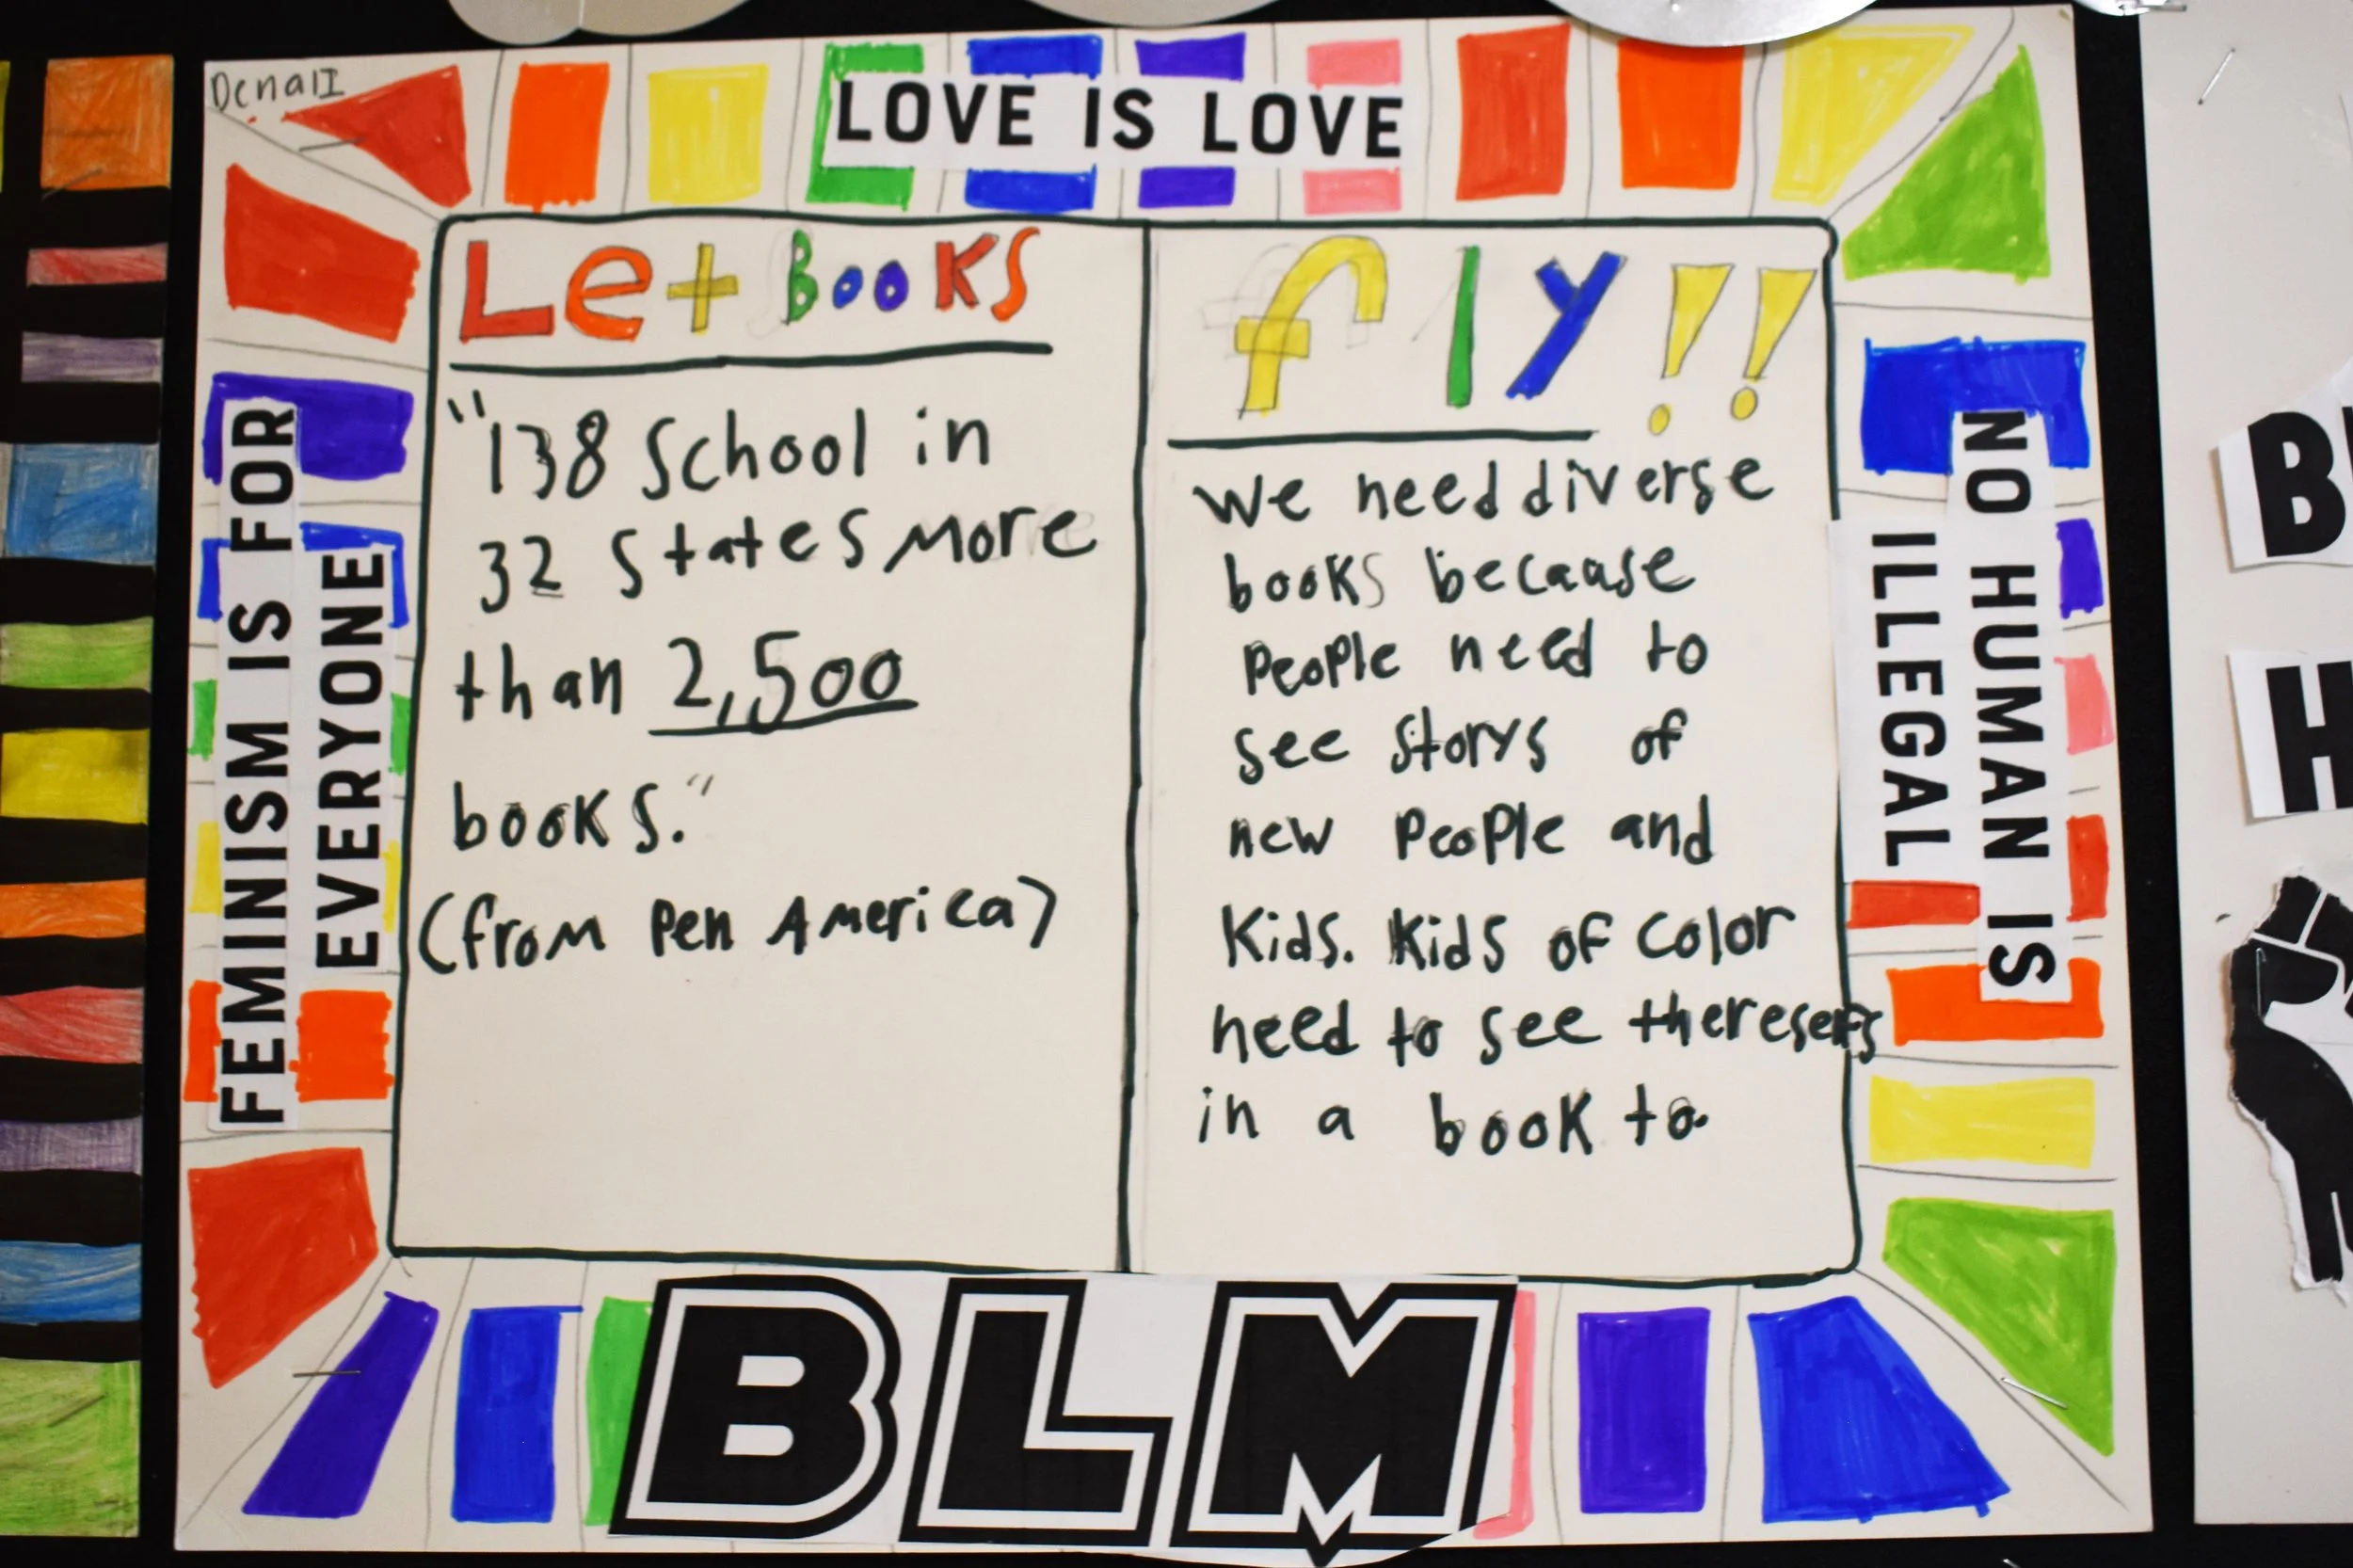 DenalI
LOVE IS LOVE
FEMINISM IS FOR
EVERYONE
Let Books
"138 School in
32 States More
than 2,500
books."
(from Pen America)
fly!!
We need diverse
books because
People need to
see storys of
new People and
Kids. Kids of color
need to see
in a book to.
NO HUMAN IS
ILLEGAL
BLM
B
H